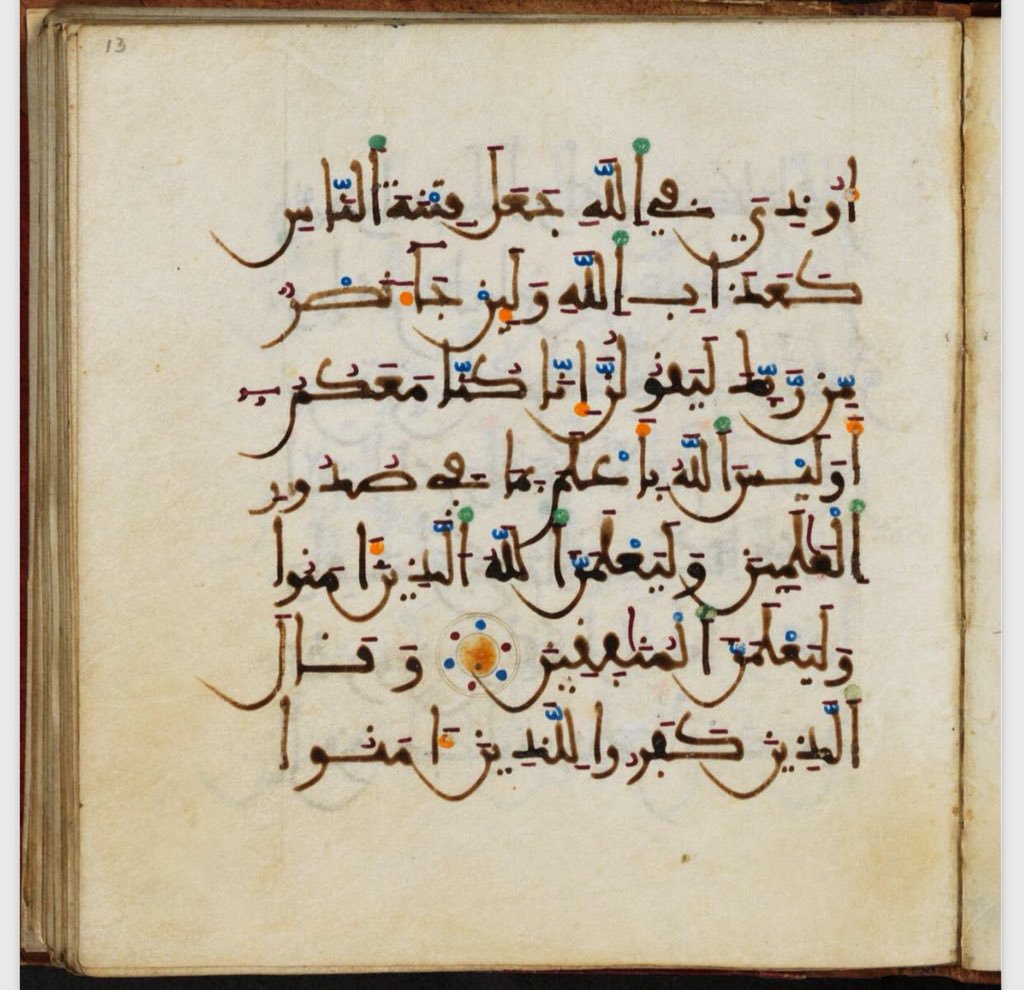 13
اُوذِيَ فِي اَللَّهِ جَعَلَ فِتْنَةَ اَلنَّاسِ
كَعَذَابِ اِللَّهِ وَلَئِن جَآءَ نَصْرٌ
مِّن رَّبِّكَ لَيَقُولُنَّ إِنَّا كُنَّا مَعَكُمْ
أَوَلَيْسَ اَللَّهُ بِأَعْلَمَ بِمَا فِي صُدُورِ
اِلْعَٰلَمِينَ وَلَيَعْلَمَنَّ اَللَّهُ اُلَّذِينَ ءَامَنُوا
وَلَيَعْلَمَنَّ اَلْمُنَٰفِقِينَ وَقَالَ
اَلَّذِينَ كَفَرُوا لِلَّذِينَ ءَامَنُوا